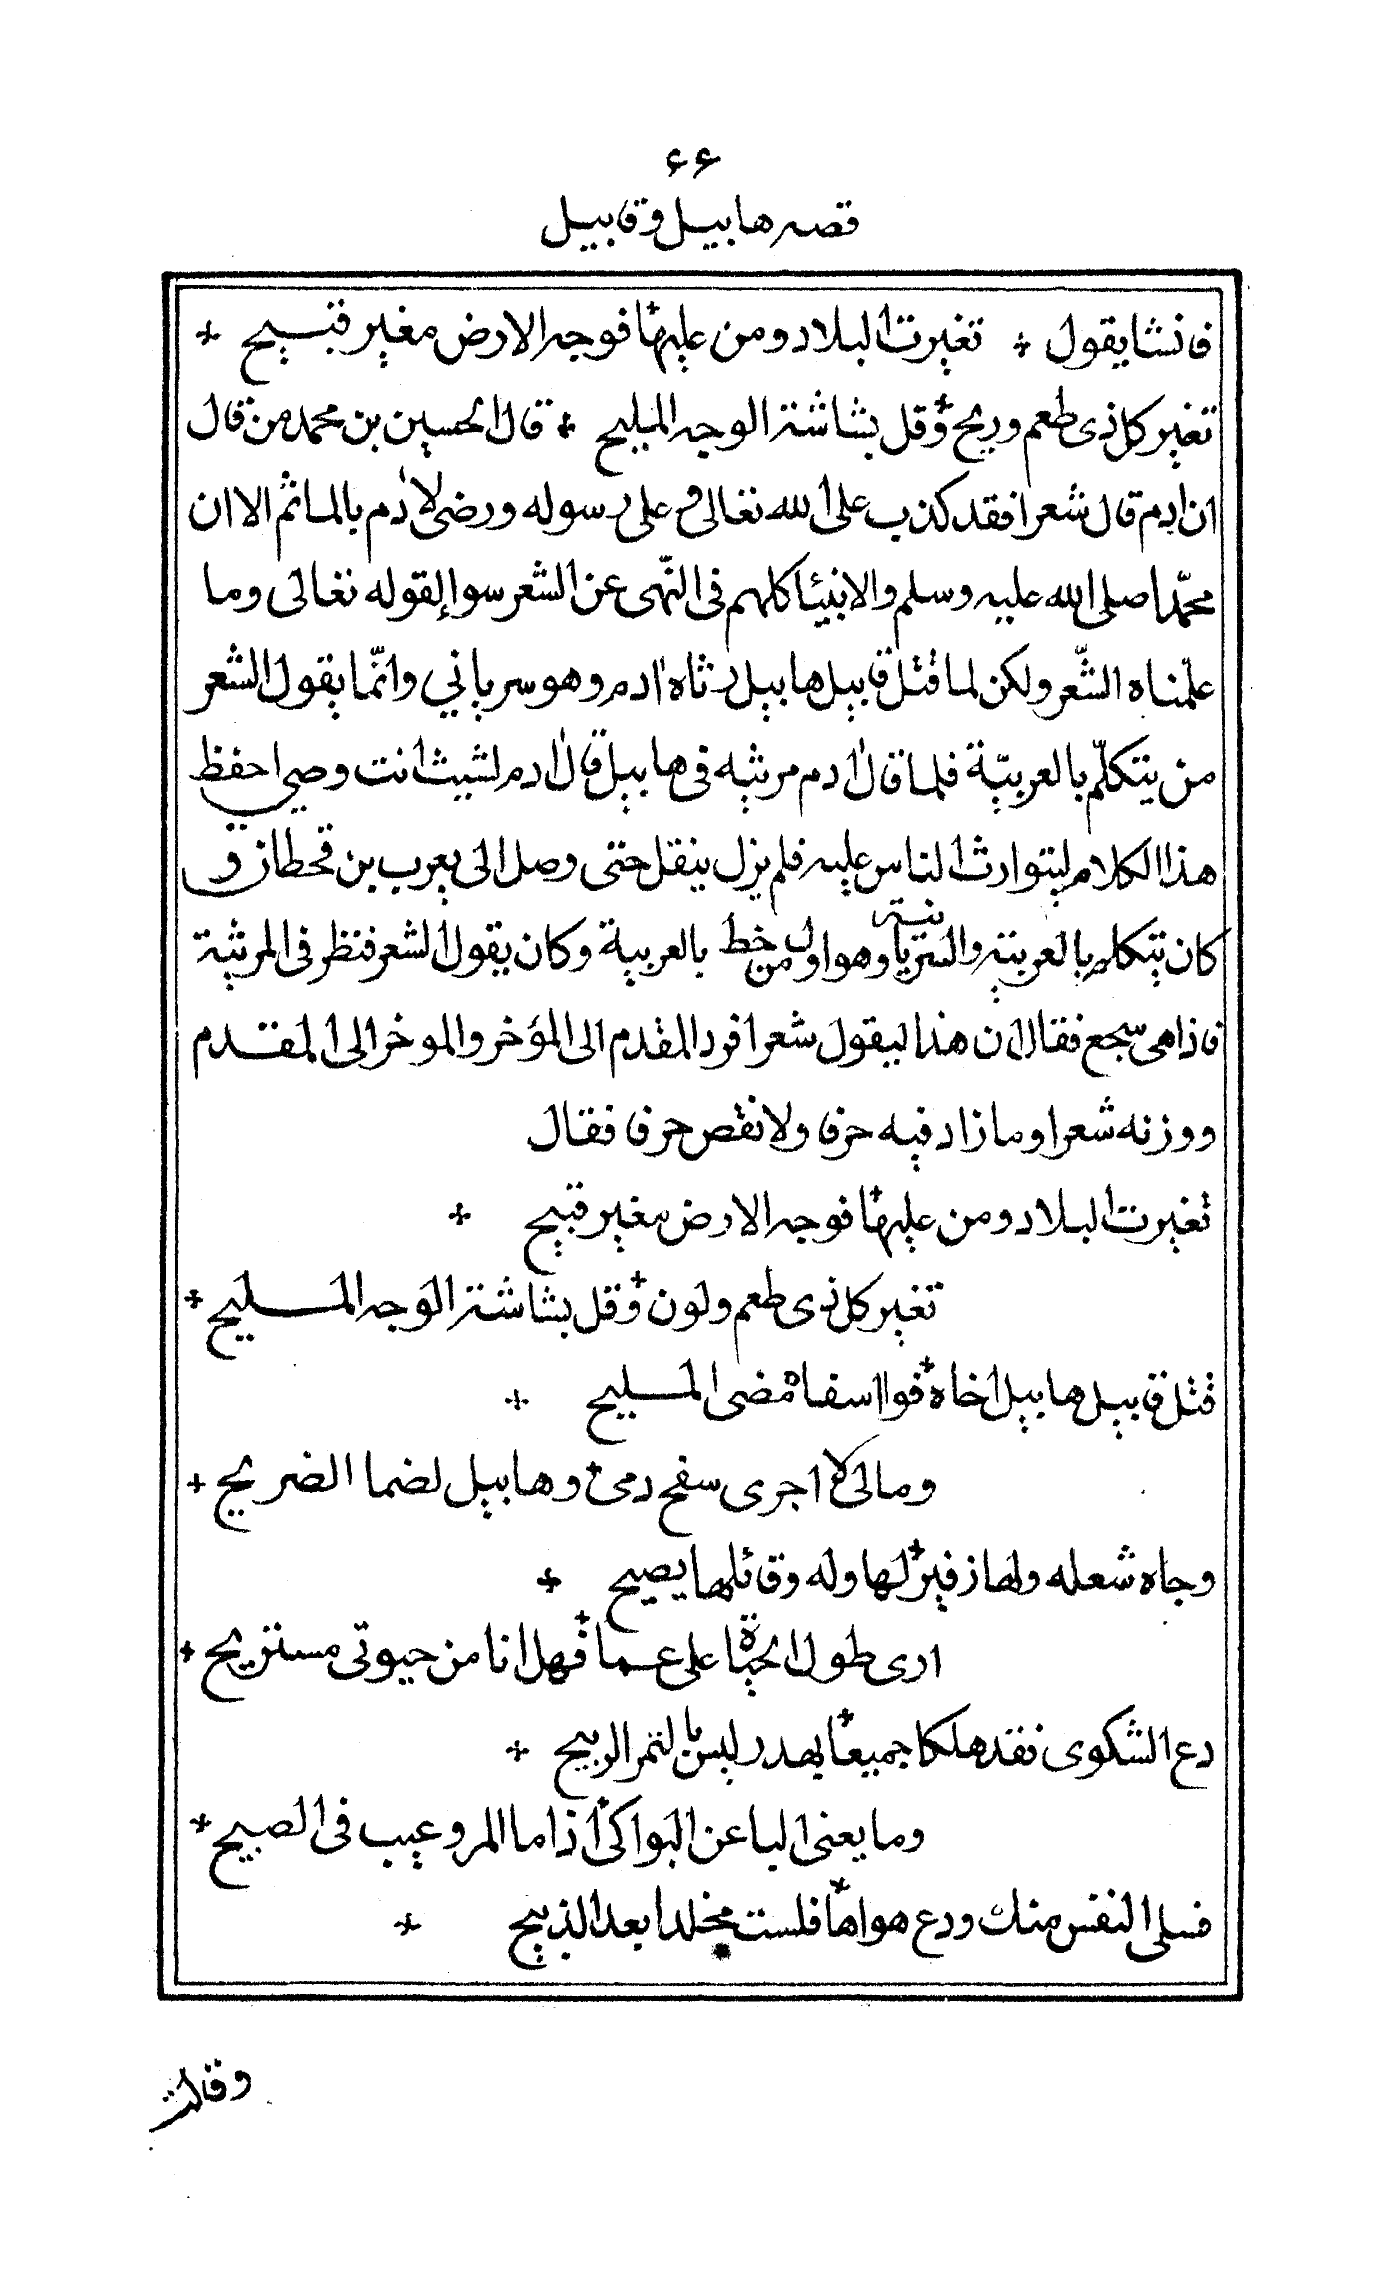 ۶۶
قصه هابيل وقابيل
فانشا يقول + تغيرت البلاد ومن عليها + فوجه الارض مغير قبيح +
تغير كل ذى طعم وريح + وقل بشاشة الوجه المليح + قال الحسين بن محمد من قال
ان ادم قال شعرا فقد كذب على الله تعالى وعلى رسوله ورضى لادم بالماثم الا ان
محمّدا صلى الله عليه وسلم والانبيئا كلهم فى النّهى عن الشعر سوا لقوله تعالى وما
علّمناه الشّعر ولكن لما قتل قابيل هابيل رثاه ادم وهو سرياني وانّما يقول الشعر
من يتكلّم بالعربيّة فلما قال ادم مرثيه فى هابيل قال ادم لشيث انت وصي احفظ
هذا الكلام ليتوارث الناس عليه فلم يزل ينقل حتى وصل الى يعرب بن قحطان و
كان يتكلم بالعربية والسريانية وهو اول من خط بالعربية وكان يقول الشعر فنظر فى المرثية
فاذا هى سجع فقال ان هذا ليقول شعرا فرد المقدم الى المؤخر والموخر الى المقدم
ووزنه شعرا وما زاد فيه حرفا ولا نقص حرفا فقال
تغيرت البلاد ومن عليها + فوجه الارض مغير قبيح +
تغير كل ذى طعم ولون + وقل بشاشة الوجه المليح +
قتل قابيل هابيل اخاه + فوا اسفاه مضى المليح +
ومالى لا اجرى سفح دمى + وهابيل لضما الضريح +
وجاه شعله ولها زفير + لها وله وقائلها يصيح +
ارى طول الحياة على عما + فهل انا من حيوتى مستريح +
دع الشكوى فقد هلكا جميعا + بهدر ليس بالثمر الربيح +
وما يعنى البا عن البواكى + اذا ما المرو عيب فى الصبيح +
فسلى النفس منك ودع هواها + فلست مخلدا بعد الذبيح +
وقالت